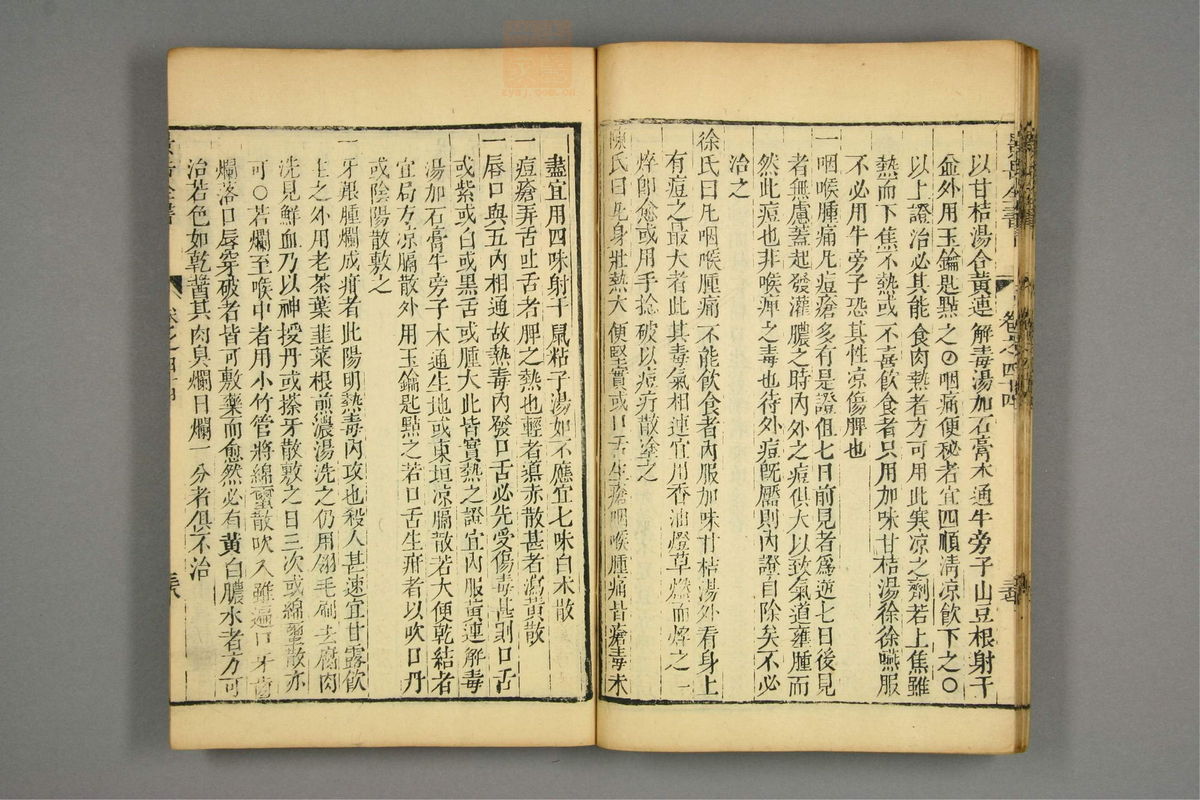 以甘桔湯合黃連解毒湯加石膏木通牛旁子山豆根射干
僉外用玉鑰匙㸃之○咽痛便秘者宜四順清凉飲下之○
以上證治必其能食肉熱者方可用此寒凉之劑若上焦雖
熱而下焦不熱或不喜飲食者只用加味甘桔湯徐徐嚥服
不必用牛旁子恐其性凉傷脾也
一咽喉腫痛凡痘瘡多有是證但七日前見者爲逆七日後見
者無慮蓋起發灌膿之時內外之痘俱大以致氣道壅腫而
然此痘也非喉痺之毒也待外痘旣靨則內證自除矣不必
治之
徐氏曰凡咽喉腫痛不能飲食者內服加味甘桔湯外看身上
有痘之最大者此其毒氣相連宜用香油燈草燃而焠之一
焠卽愈或用手捻破以痘疔散塗之
陳氏曰凡身壯熱大便堅實或口舌生瘡咽喉腫痛皆瘡毒未
卷之四十四
盡宜用四味射干鼠粘子湯如不應宜七味白术散
一痘瘡弄舌吐舌者脾之熱也輕者導赤散甚者瀉黃散
一唇口與五內相通故熱毒內發口舌必先受傷毒甚則口舌
或紫或白或黑舌或腫大此皆實熱之證宜內服黃連解毒
湯加石膏牛旁子木通生地或東垣凉膈散若大便乾結者
宜局方凉膈散外用玉鑰匙㸃之若口舌生疳者以吹口丹
或陰陽散敷之
一牙齦腫爛成疳者此陽明熱毒內攻也殺人甚速宜甘露飲
主之外用老茶葉韭菜根煎濃湯洗之仍用翎毛刷去腐肉
洗見鮮血乃以神授丹或搽牙散敷之日三次或綿璽散亦
可○若爛至喉中者用小竹管將綿璽散吹入雖遍口牙齒
爛落口唇穿破者皆可敷藥而愈然必有黃白膿水者方可
治若色如乾醬其肉臭爛日爛一分者俱不治
卷之四十四